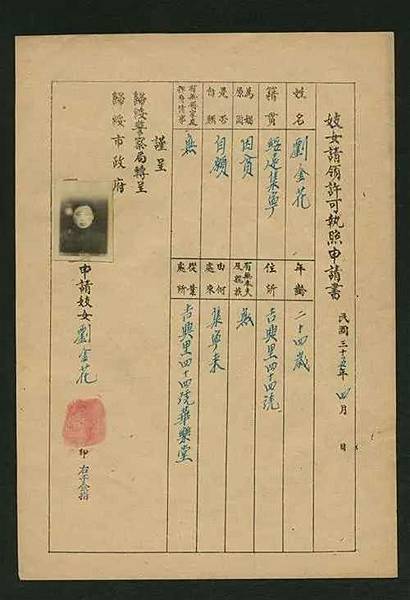 妓女請領許可執照申請書 民國三十五年 四月 日
姓名 劉金花 年齡 二十四歲
籍貫 綏遠集寧 住所 吉興里四十四號
為娼原因 因貧 有無丈夫及親族 無
是否自願 自願 由何處來 集寧來
有無領家及情事 無 從業處所 吉興里四十四號華樂堂
謹呈
歸綏警察局轉呈
歸綏市政府
申請妓女 劉金花
印 右手食指